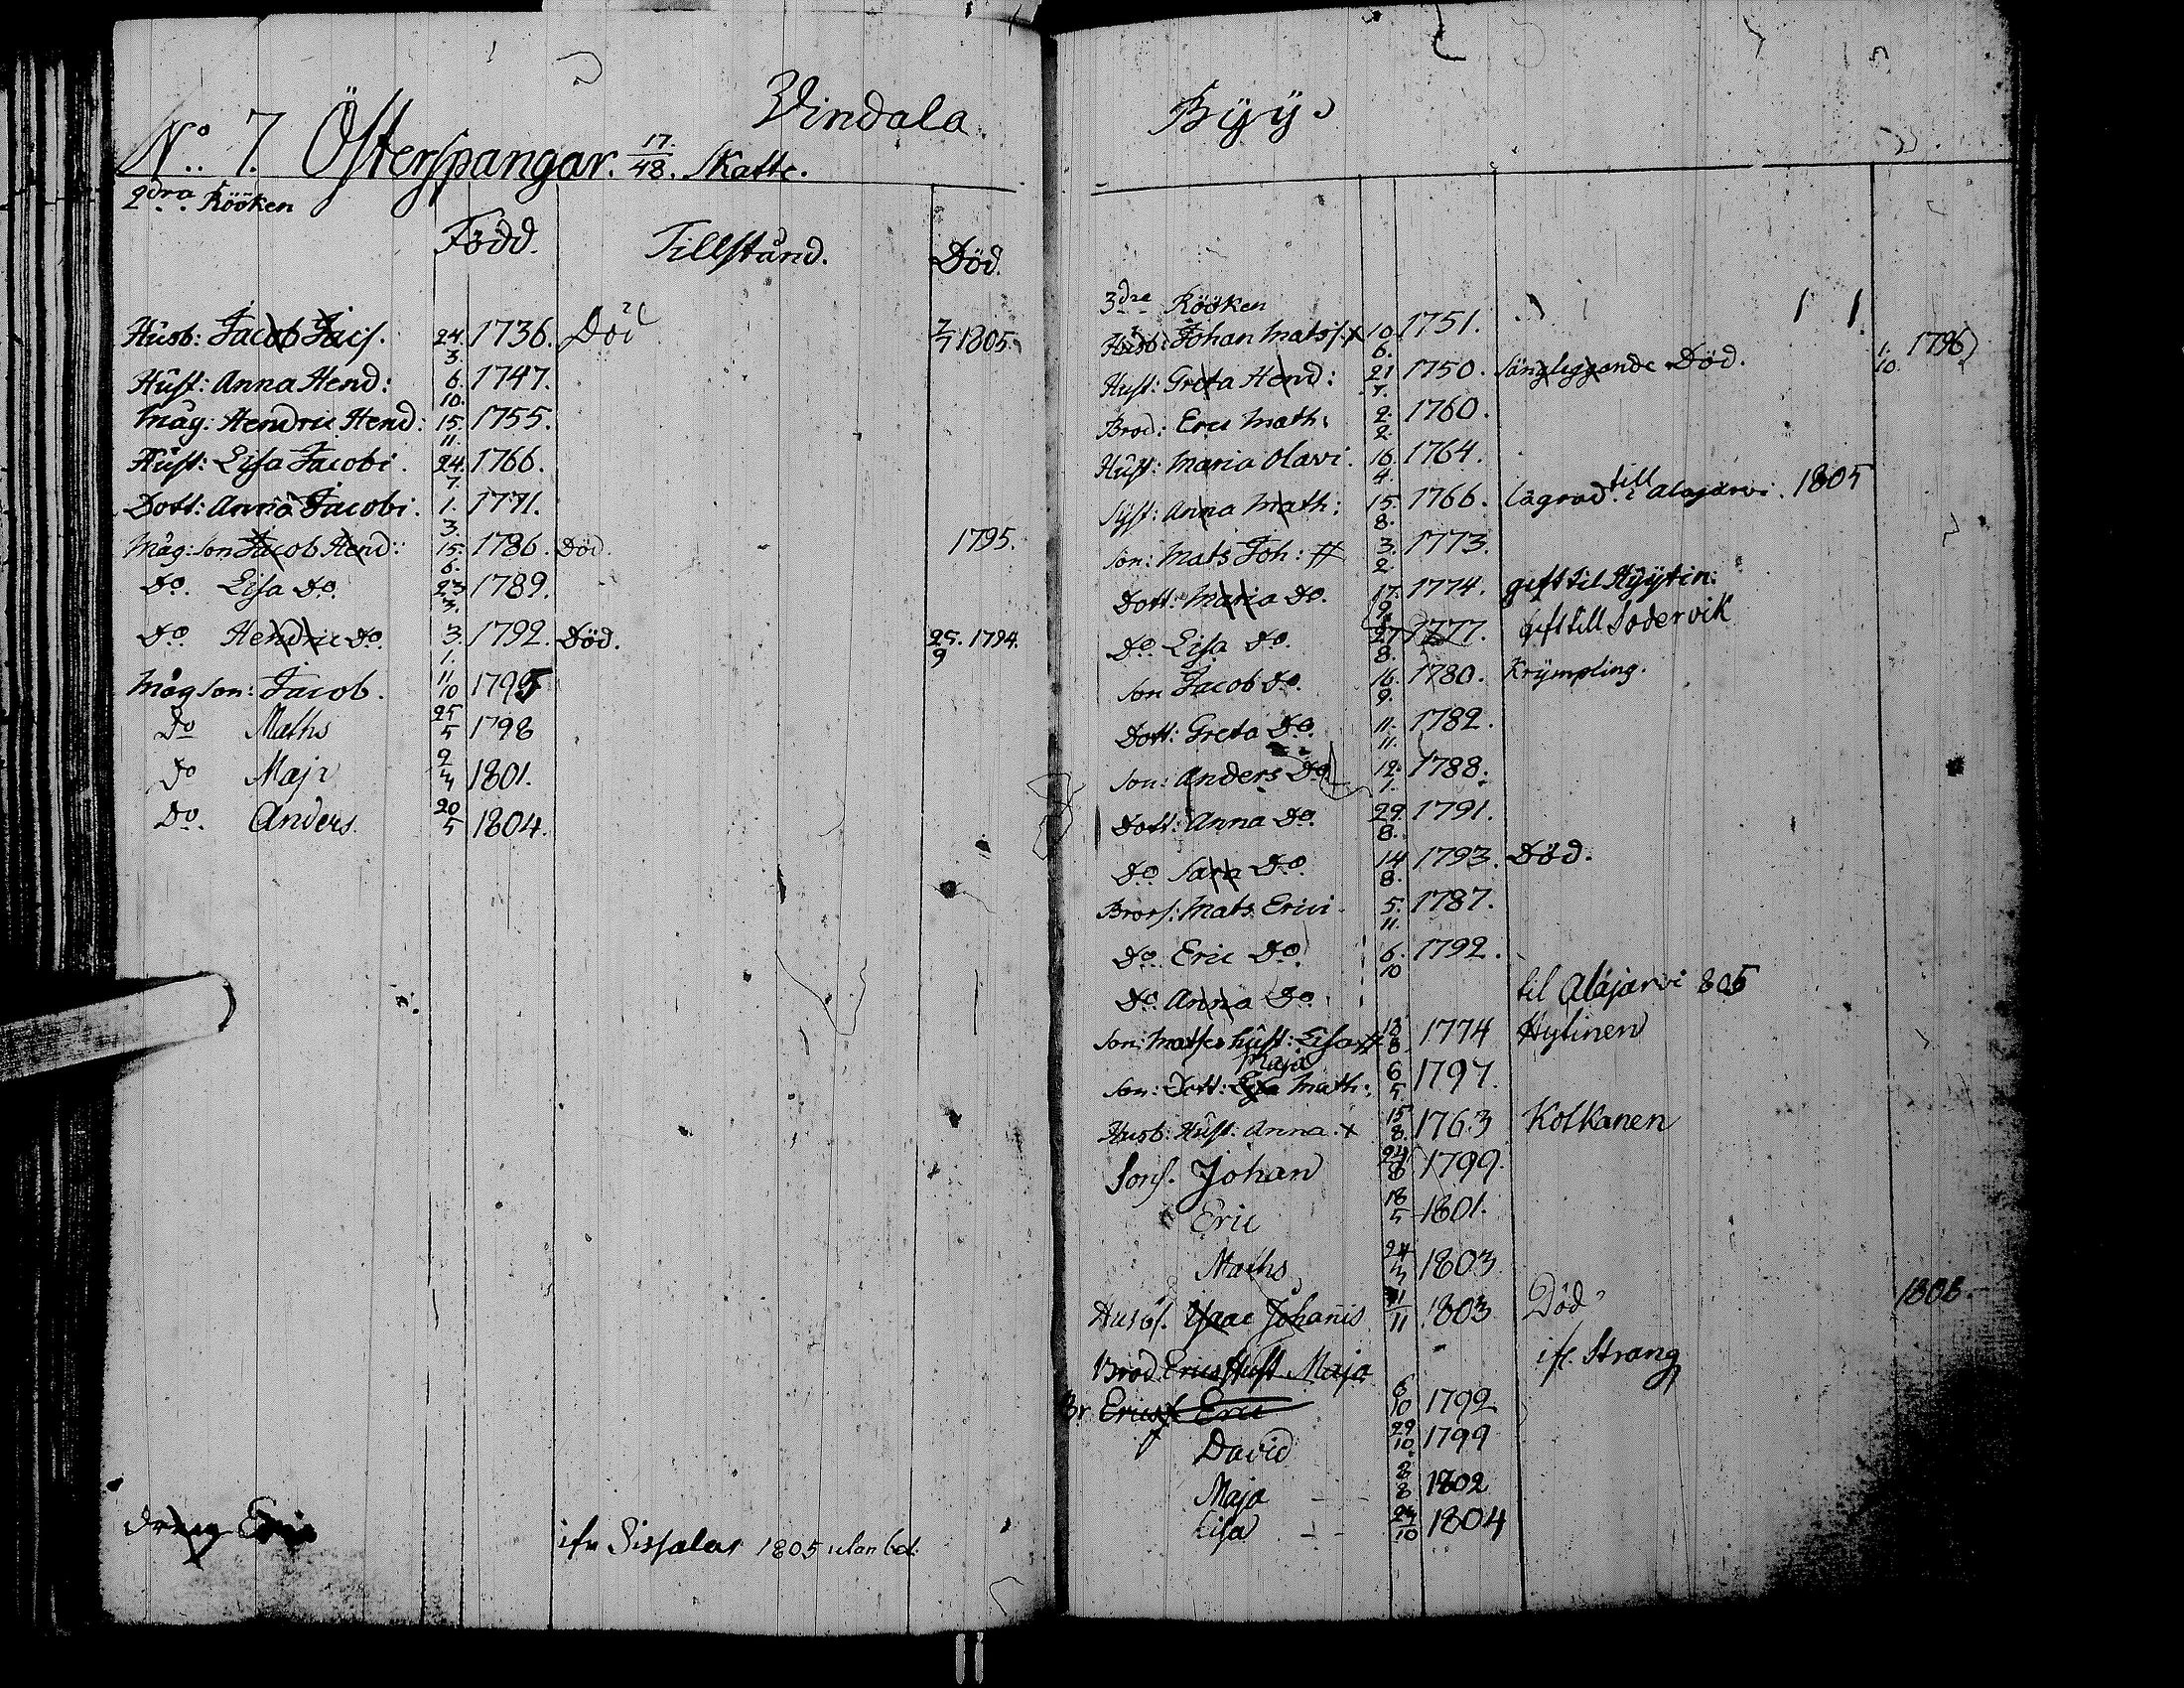 Vindala Byy
No. 7. Österspangar. 17/48. Skatte.
2dra Rööken
Född. Tillstånd. Död.
Husb: Jacob Jacs. 24. 3. 1736. Död 7/7 1805.
Hust: Anna Hend: 6. 10. 1747.
Måg: Hendric Hend: 15. 11. 1755.
Hust: Lisa Jacobi. 24. 7. 1766.
Dott: Anna Jacobi. 1. 3. 1771.
Måg: Son Jacob Hend: 15. 6. 1786. Död. 1795.
Do. Lisa Do. 23 3. 1789.
Do Hendric Do. 3. 1. 1792. Död. 25. 9 1794.
Mågson: Jacob. 11 10 1795
Do Maths 25 5 1798
Do Maja 2 4 1801.
Do. Anders. 20 5 1804.
dräng Eric ifn Sissalar 1805 utan bet.
3dre Rööken
Husb: Johan Matss. x 10. 6. 1751.
Hust: Greta Hend: 21 7. 1750. sängliggande Död. 1. 10. 1796
Brod: Eric Math: 2. 2. 1760.
Hust: Maria Olavi. 16. 4. 1764.
Syst: Anna Math: 15. 8. 1766. lägrad. till Alajärvi. 1805
Son: Mats Joh: # 3. 2. 1773.
Dott: Maria Do. 17. 9. 1774. gift til Hyytin:
Do Lisa Do. 27 8. 1777. gift till Södervik
Son Jacob Do. 16. 9. 1780. Krympling.
Dott: Greta Do. 11. 11. 1782.
Son: Anders Do. 12. 1. 1788.
Dott: Anna Do. 29. 8. 1791.
Do Sara Do. 14 8. 1793. Död.
Brors: Mats Erici. 5. 11. 1787.
Do. Eric Do. 6. 10 1792.
Do Anna Do. til Alajärvi 805
Son: Matses hust: Lisa # 13 8. 1774 Hytinen
Son: Dott: Lisa Maja Math: 6 5. 1797.
Husb: Hust: Anna. x 15 8. 1763 Kolkanen
Sons. Johan 24 8 1799.
Eric 18 5 1801.
Maths 24 4 1803
Husbs. Isaac Johanis 11 11 1803 Död 1806.
Brod Erics Hust Maja ifr. Strang
Br Erics Eric 6 10 1792
David 29 10 1799
Maja 8 8 1802
Lisa 24 10 1804